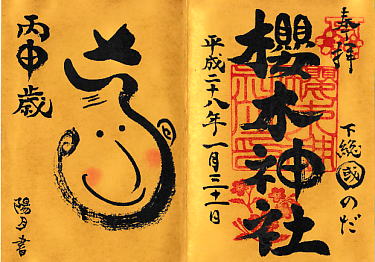 奉拝
下総國のだ
櫻木神社
平成二十八年一月三十一日
丙申歳
陽月書